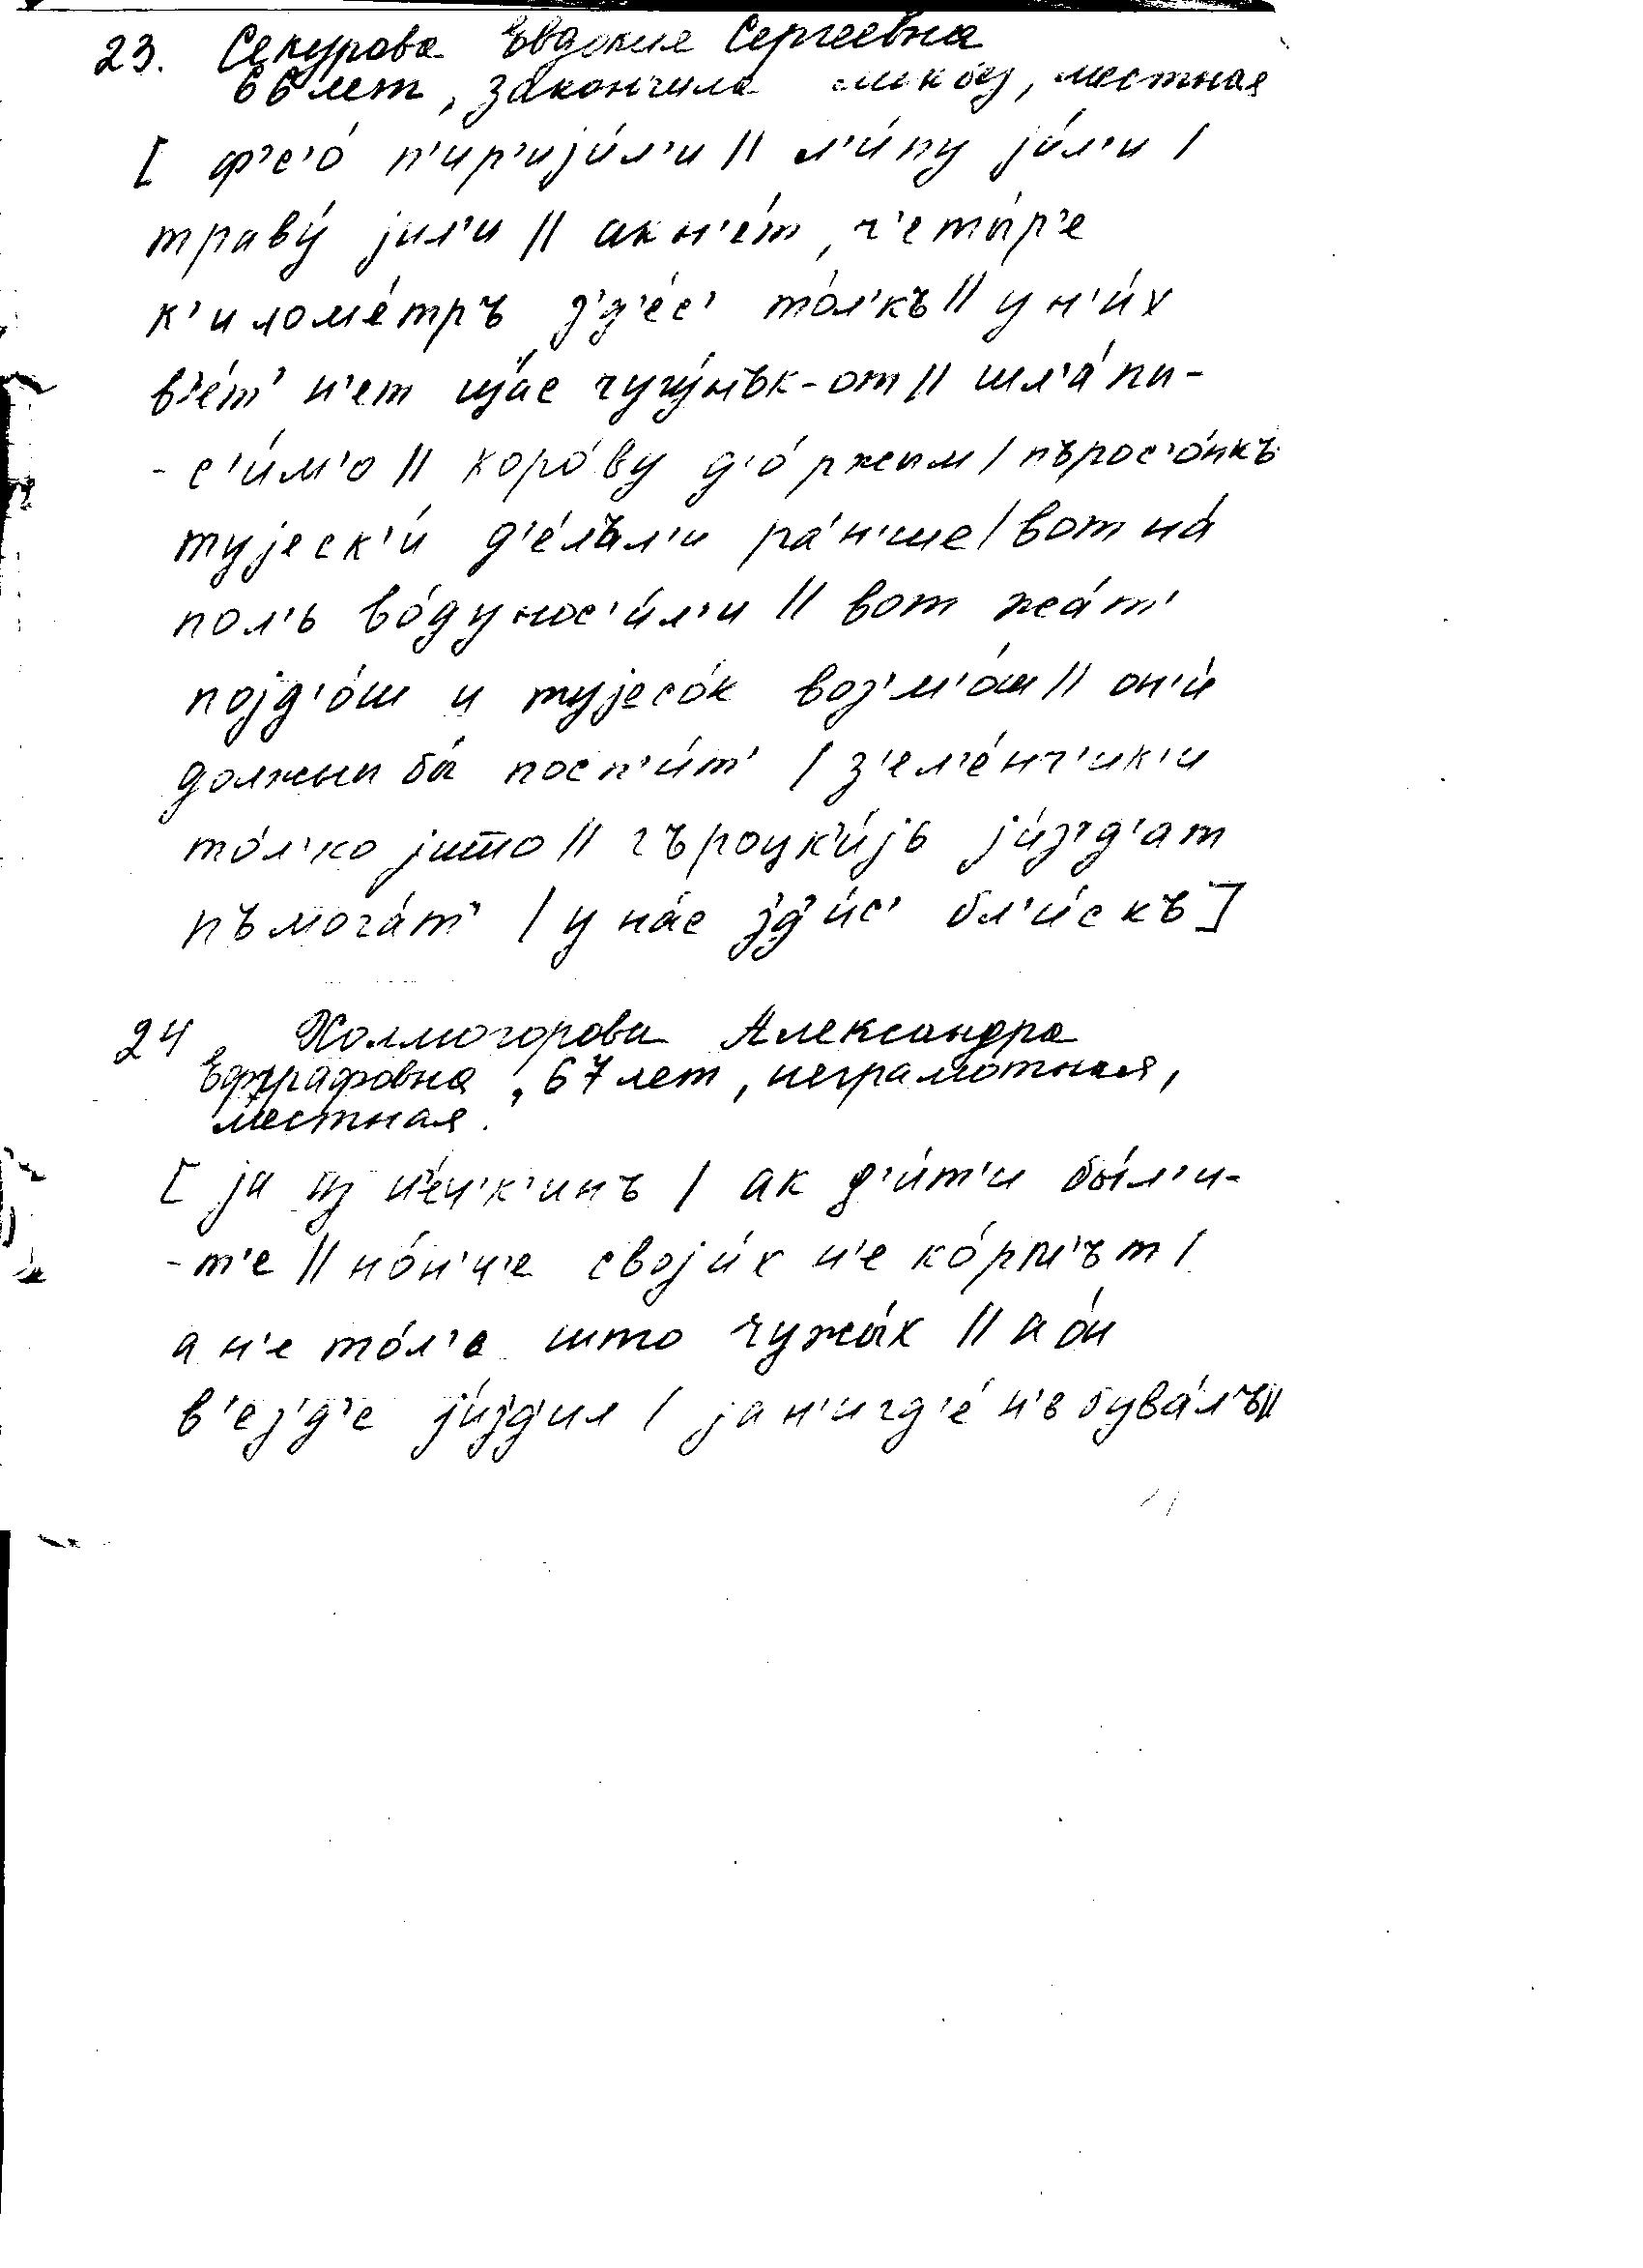 23. Секурова Евдокия Сергеевна
66 лет, закончила ликбез, местная
[ ф'с'о́ п'ир'ији́л'и || л'и́пу ји́л'и /
траву́ јил'и || ак н'е́т, ч'еты́р'е
к'иломе́тръ з'д'е́с' то́л'къ || у н'и́х
в'е́т' н'ет щ́ас чугу́нък-от || шл'а́пи-
- с'и́м'о || коро́ву д'о́ржым / пърос'о́нкъ
тујеск'и́ д'е́лъл'и ра́н'ше / вот на́
пол'ь во́ду нос'и́л'и || вот жа́т'
појд'о́ш и тујесо́к воз'м'о́ш || он'и́
должны бы́ посп'и́т' / з'ел'е́нч'ик'и
то́л'ко јишто || гъроцк'и́јь јиз'д'ат
пъмога́т' / у на́с з'д'и́с' бл'и́скъ ]
24 Холмогорова Александра
Евграфовна, 67 лет, неграмотная,
местная.
[ ја из н'е́ч'к'инъ / ак д'и́т'и бы́л'и-
- т'е || но́н'ч'е својих н'е ко́рм'ът /
а н'е то́л'е што чужы́х || а о́н
в'ез'д'е јиз'д'ил / ја н'игд'е́ н'ь бува́лъ ||